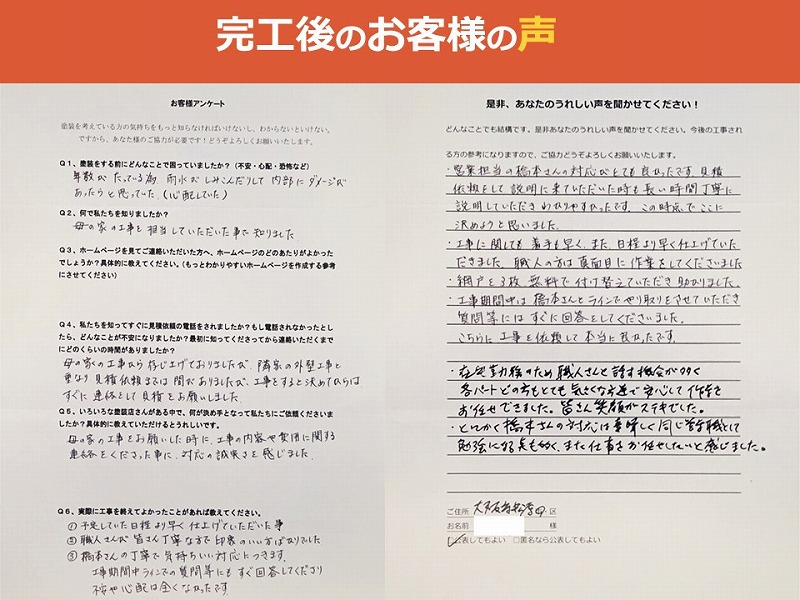 完工後のお客様の声
お客様アンケート
塗装を考えている方の気持ちをもっと知らなければいけないし、わからないといけない。
ですから、あなた様のご協力が必要です！どうぞよろしくお願いいたします。
Q1、塗装をする前にどんなことで困っていましたか？（不安・心配・恐怖など）
年数がたっている為 雨水がしみこんだりして内部にダメージが
あったらと思っていた（心配していた）
Q2、何で私たちを知りましたか？
母の家の工事を担当していただいた事で知りました
Q3、ホームページを見てご連絡いただいた方へ、ホームページのどのあたりがよかった
でしょうか？具体的に教えてください。（もっとわかりやすいホームページを作成する参考
にさせてください）
Q4、私たちを知ってすぐに見積依頼の電話をされましたか？もし電話されなかったとし
たら、どんなことが不安になりましたか？最初に知ってくださってから連絡いただくまで
にどのくらいの時間がありましたか？
母の家の工事から存じ上げておりましたが、隣家の外壁工事と
重なり見積依頼までは間がありましたが、工事をすると決めてからは
すぐに連絡をして見積をお願いしました。
Q5、いろいろな塗装店さんがある中で、何が決め手となって私たちにご依頼くださいま
したか？具体的に教えていただけるとうれしいです。
母の家の工事をお願いした時に、工事の内容や費用に関する
連絡をくださった事に、対応の誠実さを感じました。
Q6、実際に工事を終えてよかったことがあれば教えてください。
①予定していた日程より早く仕上げていただいた事
②職人さんが皆さん丁寧な方で印象のいい方ばかりでした
③橋本さんの丁寧で気持ちいい対応につきます。
工事期間中ラインでの質問等にもすぐ回答してくださり
不安や心配は全くなかったです。
是非、あなたのうれしい声を聞かせてください！
どんなことでも結構です。是非あなたのうれしい声を聞かせてください。今後の工事され
る方の参考になりますので、ご協力どうぞよろしくお願いいたします。
・営業担当の橋本さんの対応がとても良かったです。見積
依頼をして説明に来ていただいた時も長い時間丁寧に
説明していただきわかりやすかったです。この時点でここに
決めようと思いました。
・工事に関しても着手も早く、また、日程より早く仕上げていた
だきました。職人の方は真面目に作業をしてくださいました
・網戸を3枚無料で付け替えていただき助かりました。
・工事期間中は橋本さんとラインでやり取りをさせていただき
質問等にはすぐに回答をしてくださいました。
こちらに工事を依頼して本当に良かったです。
・在宅勤務のため職人さんと話す機会が多く
各パートどの方もとても気さくな方達で安心して作業を
お任せできました。皆さん笑顔がステキでした。
・とにかく橋本さんの対応は素晴しく同じ営業職として
勉強になる点も多く、また仕事をお任せしたいと感じました。
ご住所 大阪市 区
お名前 様
☑公表してもよい □匿名なら公表してもよい